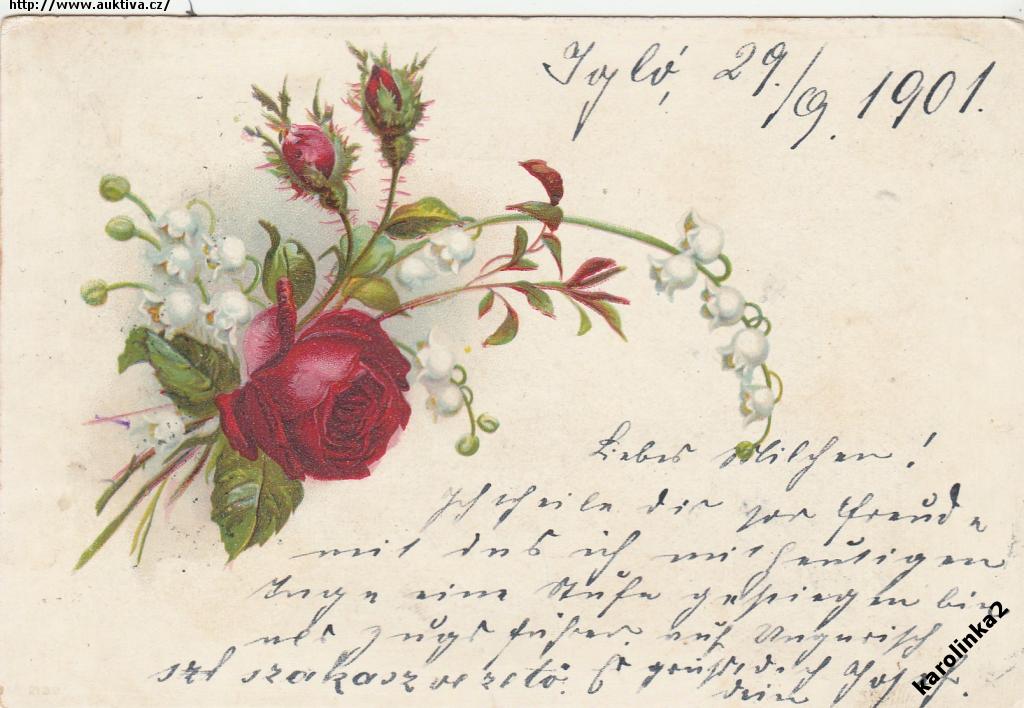 http://www.auktiva.cz/
Igló, 29./9. 1901.
Liebes Milchen!
Ich theile dir vor Freude
mit das ich mit heutigen
Tage eine Stufe gestiegen bin
als Zugsführer auf Ungarisch
szt szakaszvezető. Es grüßt dich
dein Josef.
karolinka2